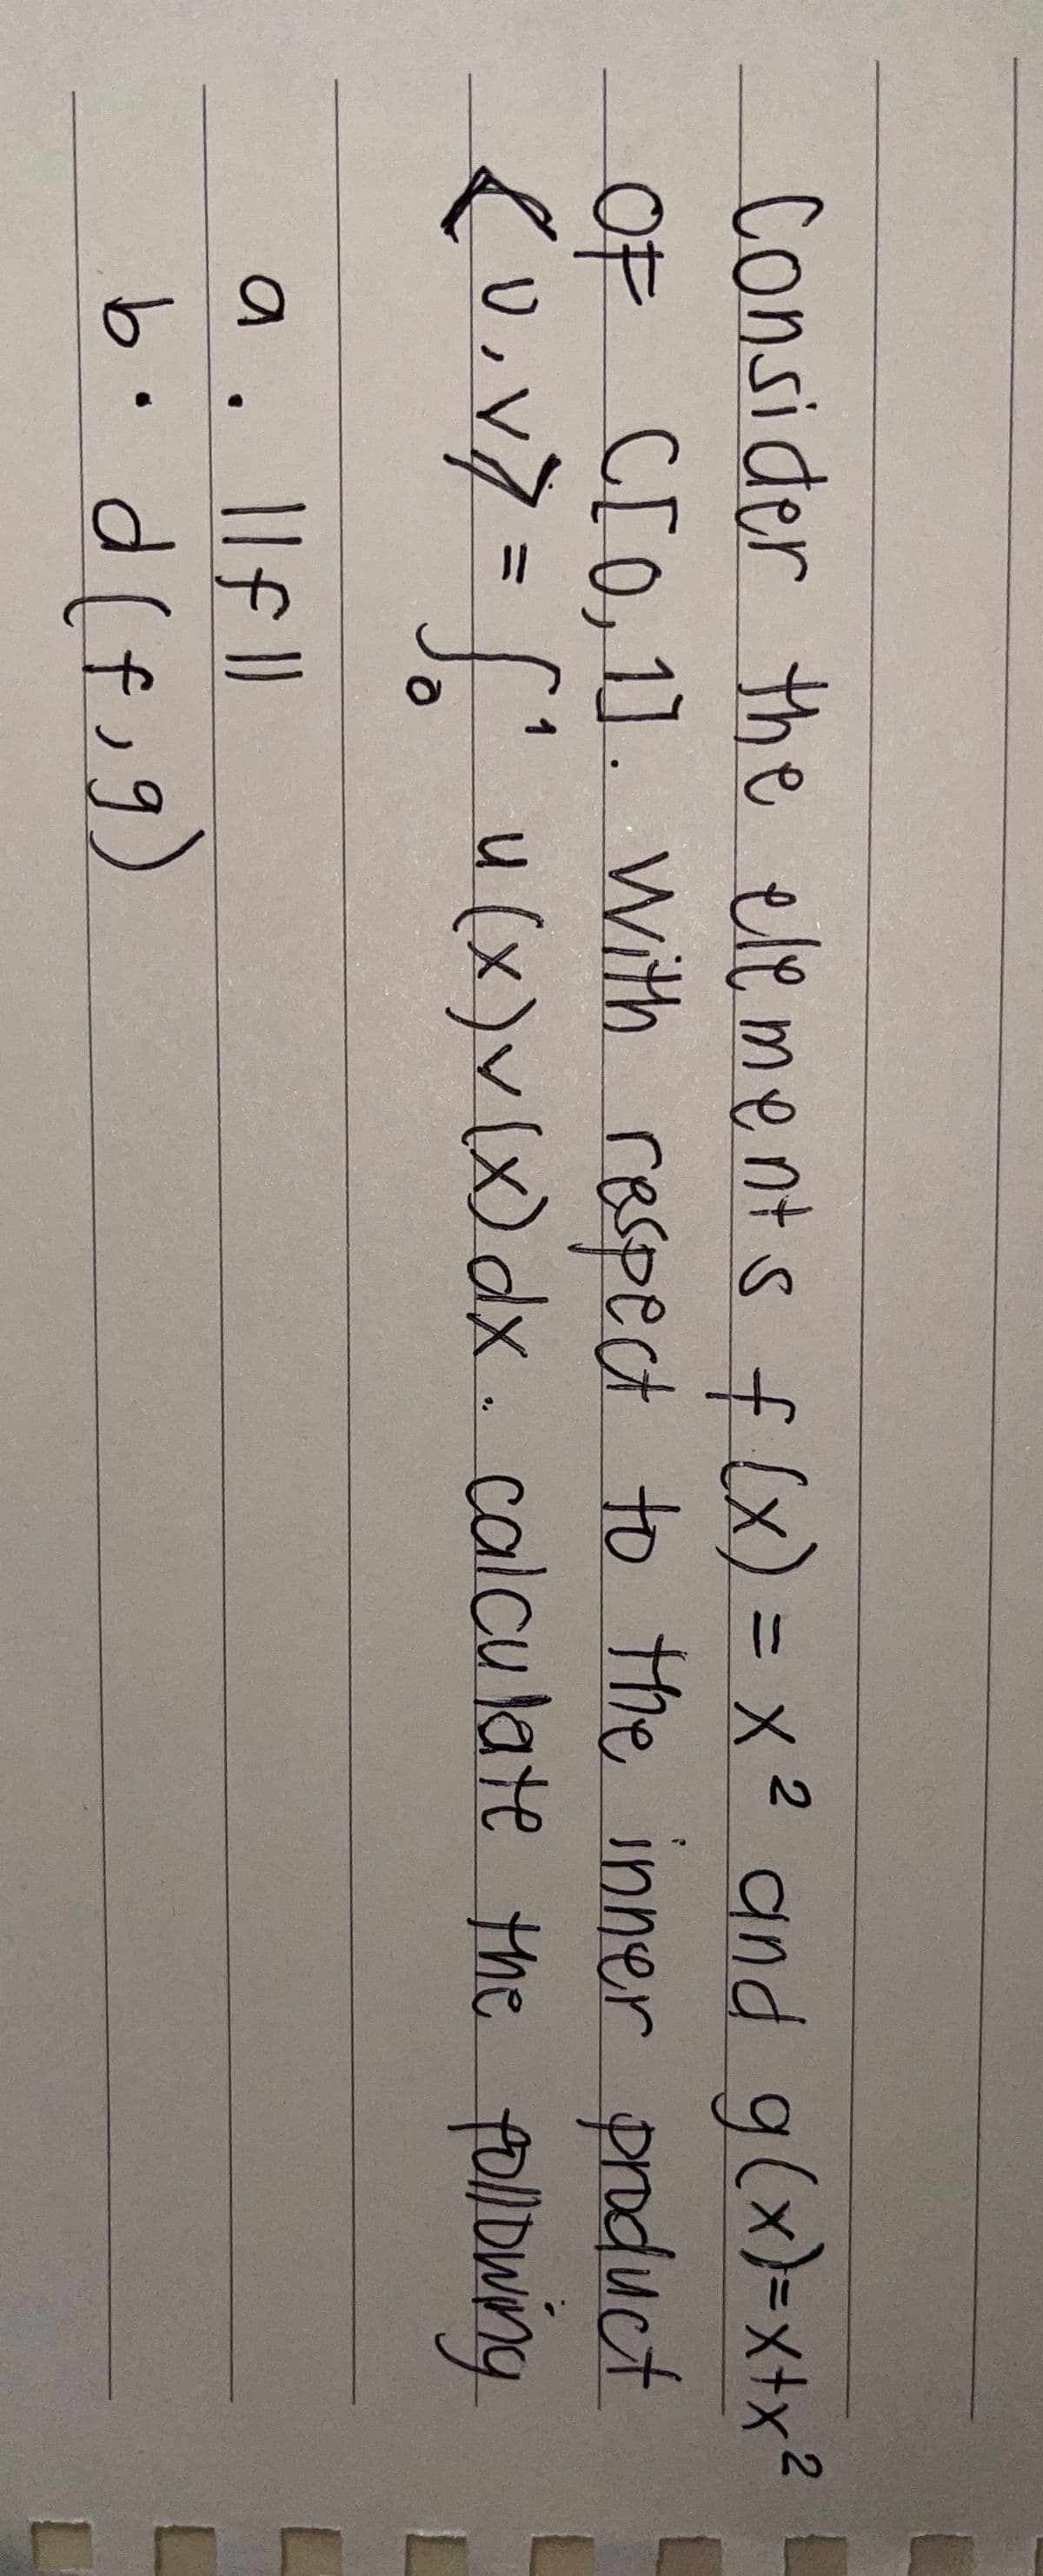 Consider the elements f(x) = x² and g(x)=x+x²
OF C[0,1]. With respect to the inner product
<u,v> = ∫₀¹ u(x)v(x)dx. calculate the following
a. ||f||
b. d(f,g)